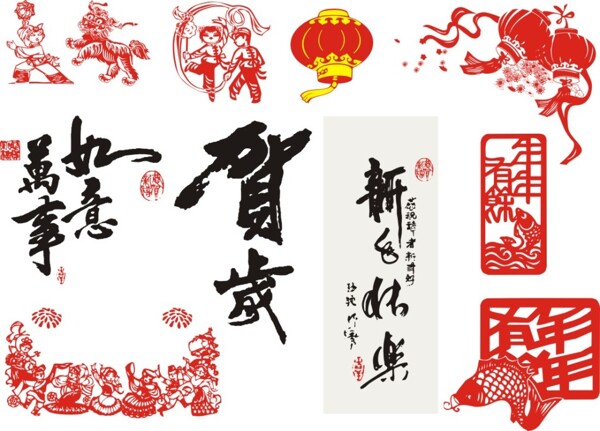 萬事
如意
賀歲
新年快樂
恭祝讀者新年好
年年
有餘
年年
有